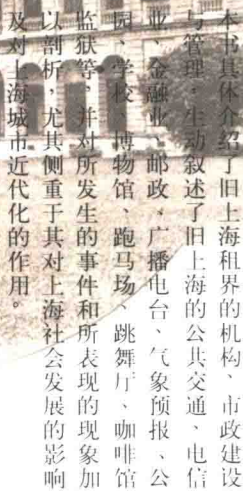 本书具体介绍了旧上海租界的机构、市政建设
与管理，生动叙述了旧上海的公共交通、电信
业、金融业、邮政、广播电台、气象预报、公
园、学校、博物馆、跑马场、跳舞厅、咖啡馆
监狱等，并对所发生的事件和所表现的现象加
以剖析，尤其侧重于其对上海社会发展的影响
及对上海城市近代化的作用。